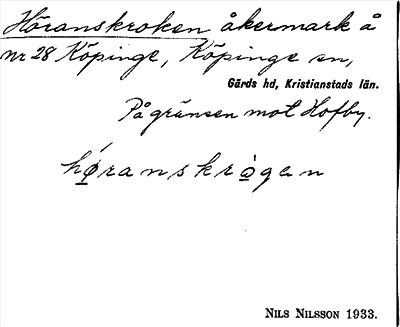 Höranskroken åkermark å
nr 28 Köpinge, Köpinge sn,
Gärds hd, Kristianstads län.
På gränsen mot Hofby.
hǿranskrògen
NILS NILSSON 1933.